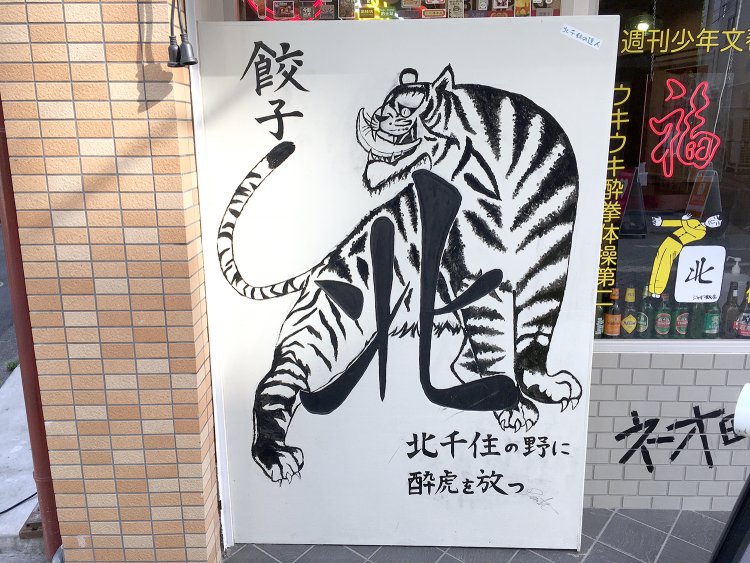 餃子
北
北千住の野に
酔虎を放つ
北千住の達人
週刊少年文春
福
ウキウキ酔拳体操第一
北
ネーオ